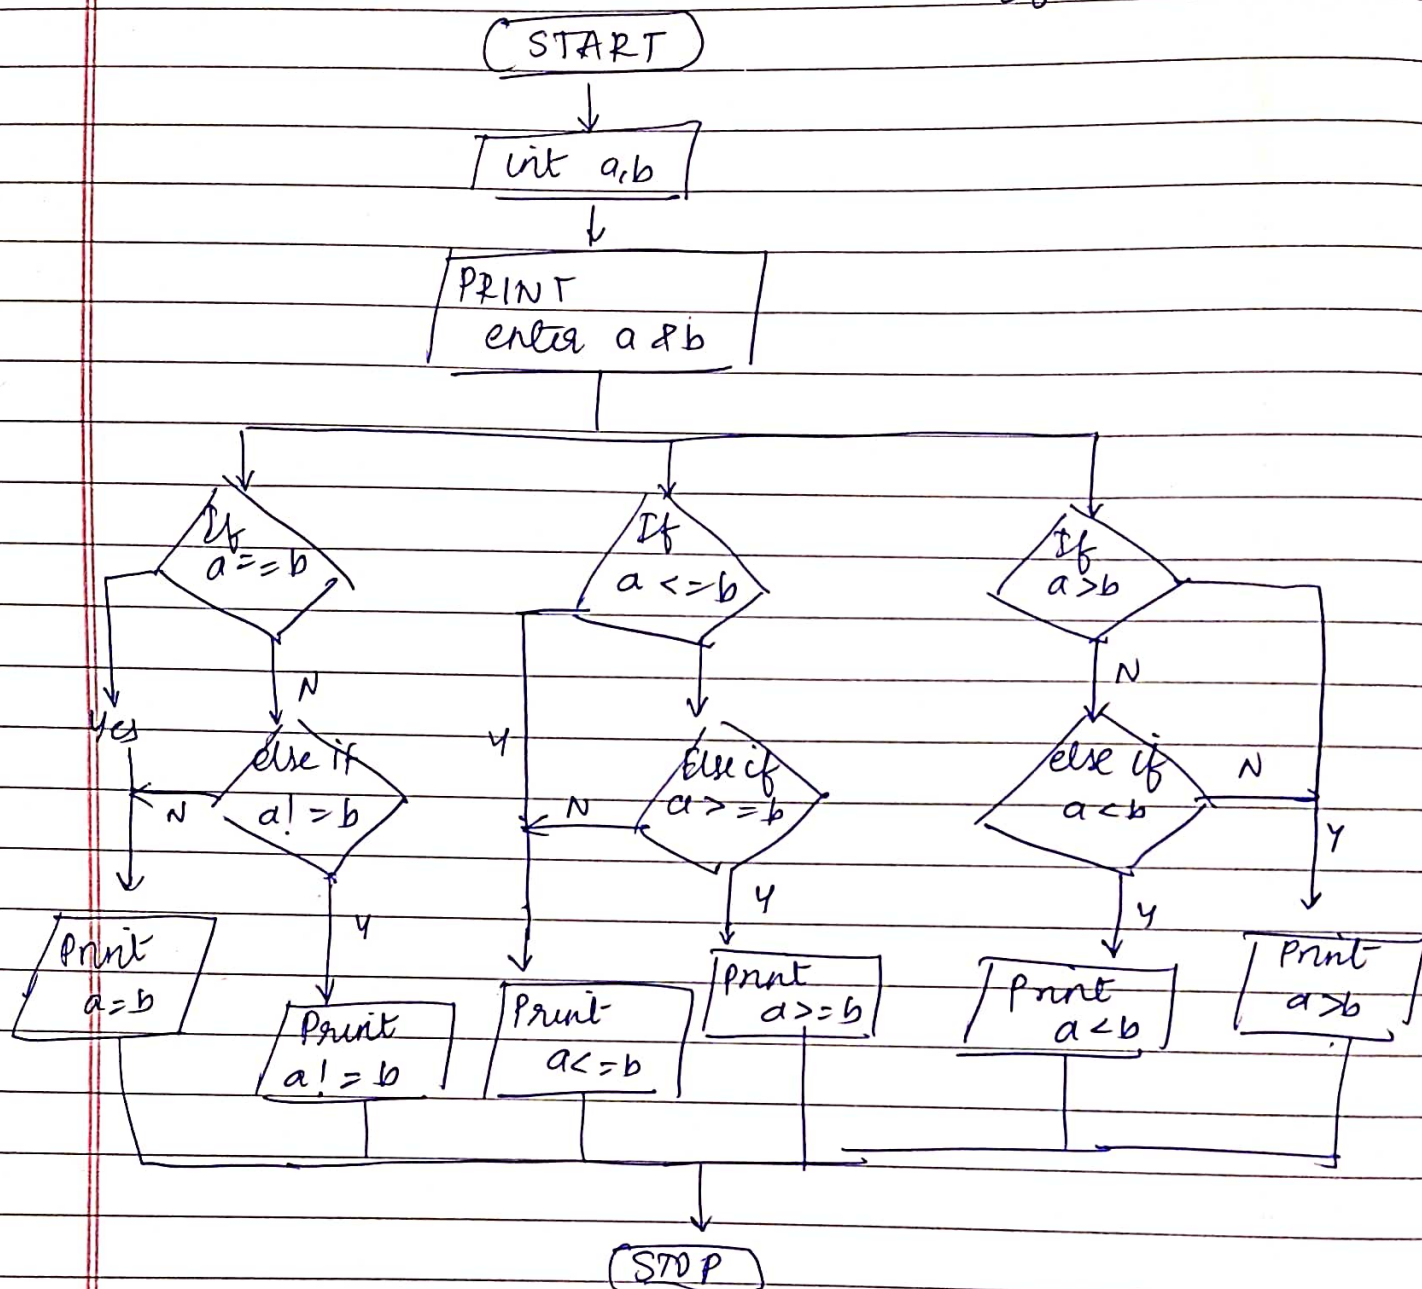 START
int a,b
PRINT
enter a & b
If
a==b
If
a <=b
If
a>b
N
N
Yes
Y
else if
a!=b
N
Else if
a>=b
N
else if
a<b
N
Y
Y
Y
Y
Print
a=b
Print
a!=b
Print
a<=b
Print
a>=b
Print
a<b
Print
a>b
STOP